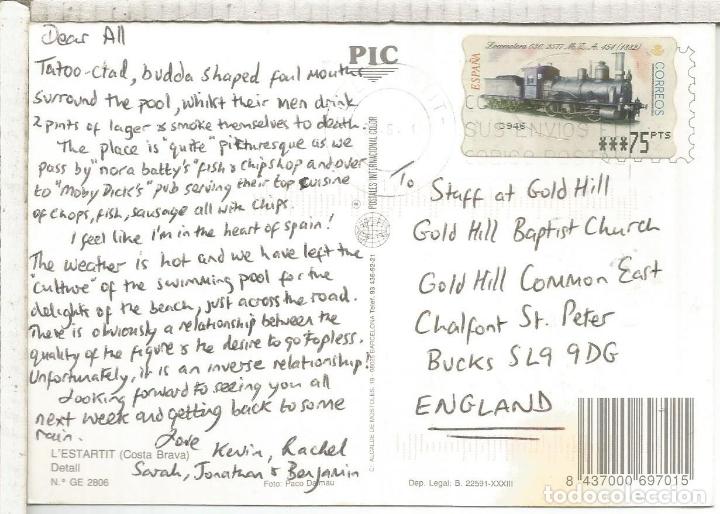 Dear All
Tatoo-clad, budda shaped foul mouths
surround the pool, whilst their men drink
2 pints of lager & smoke themselves to death.
The place is "quite" picturesque as we
pass by "nora batty's" fish & chip shop and over
to "Moby Dick's" pub serving their top cuisine
of chops, fish, sausage all with chips.
I feel like I'm in the heart of spain!
The weather is hot and we have left the
"culture" of the swimming pool for the
delights of the beach, just across the road.
There is obviously a relationship between the
quality of the figure & the desire to go topless.
Unfortunately, it is an inverse relationship!
Looking forward to seeing you all
next week and getting back to some
rain.
Love
Kevin, Rachel
Sarah, Jonathan & Benjamin
L'ESTARTIT (Costa Brava)
Detall
N.º GE 2806
Foto: Paco Dalmau
PIC
POSTALES INTERNACIONAL COLOR
C/. ALCALDE DE MOSTOLES, 19 - BARCELONA Teléf. 93 436-62-21
Locomotora 030 2577 M.Z.A. 454 (1882)
ESPAÑA
CORREOS
***75 PTS
To Staff at Gold Hill
Gold Hill Baptist Church
Gold Hill Common East
Chalfont St. Peter
Bucks SL9 9DG
ENGLAND
Dep. Legal: B. 22591-XXXIII
8 437000 697015
todocoleccion